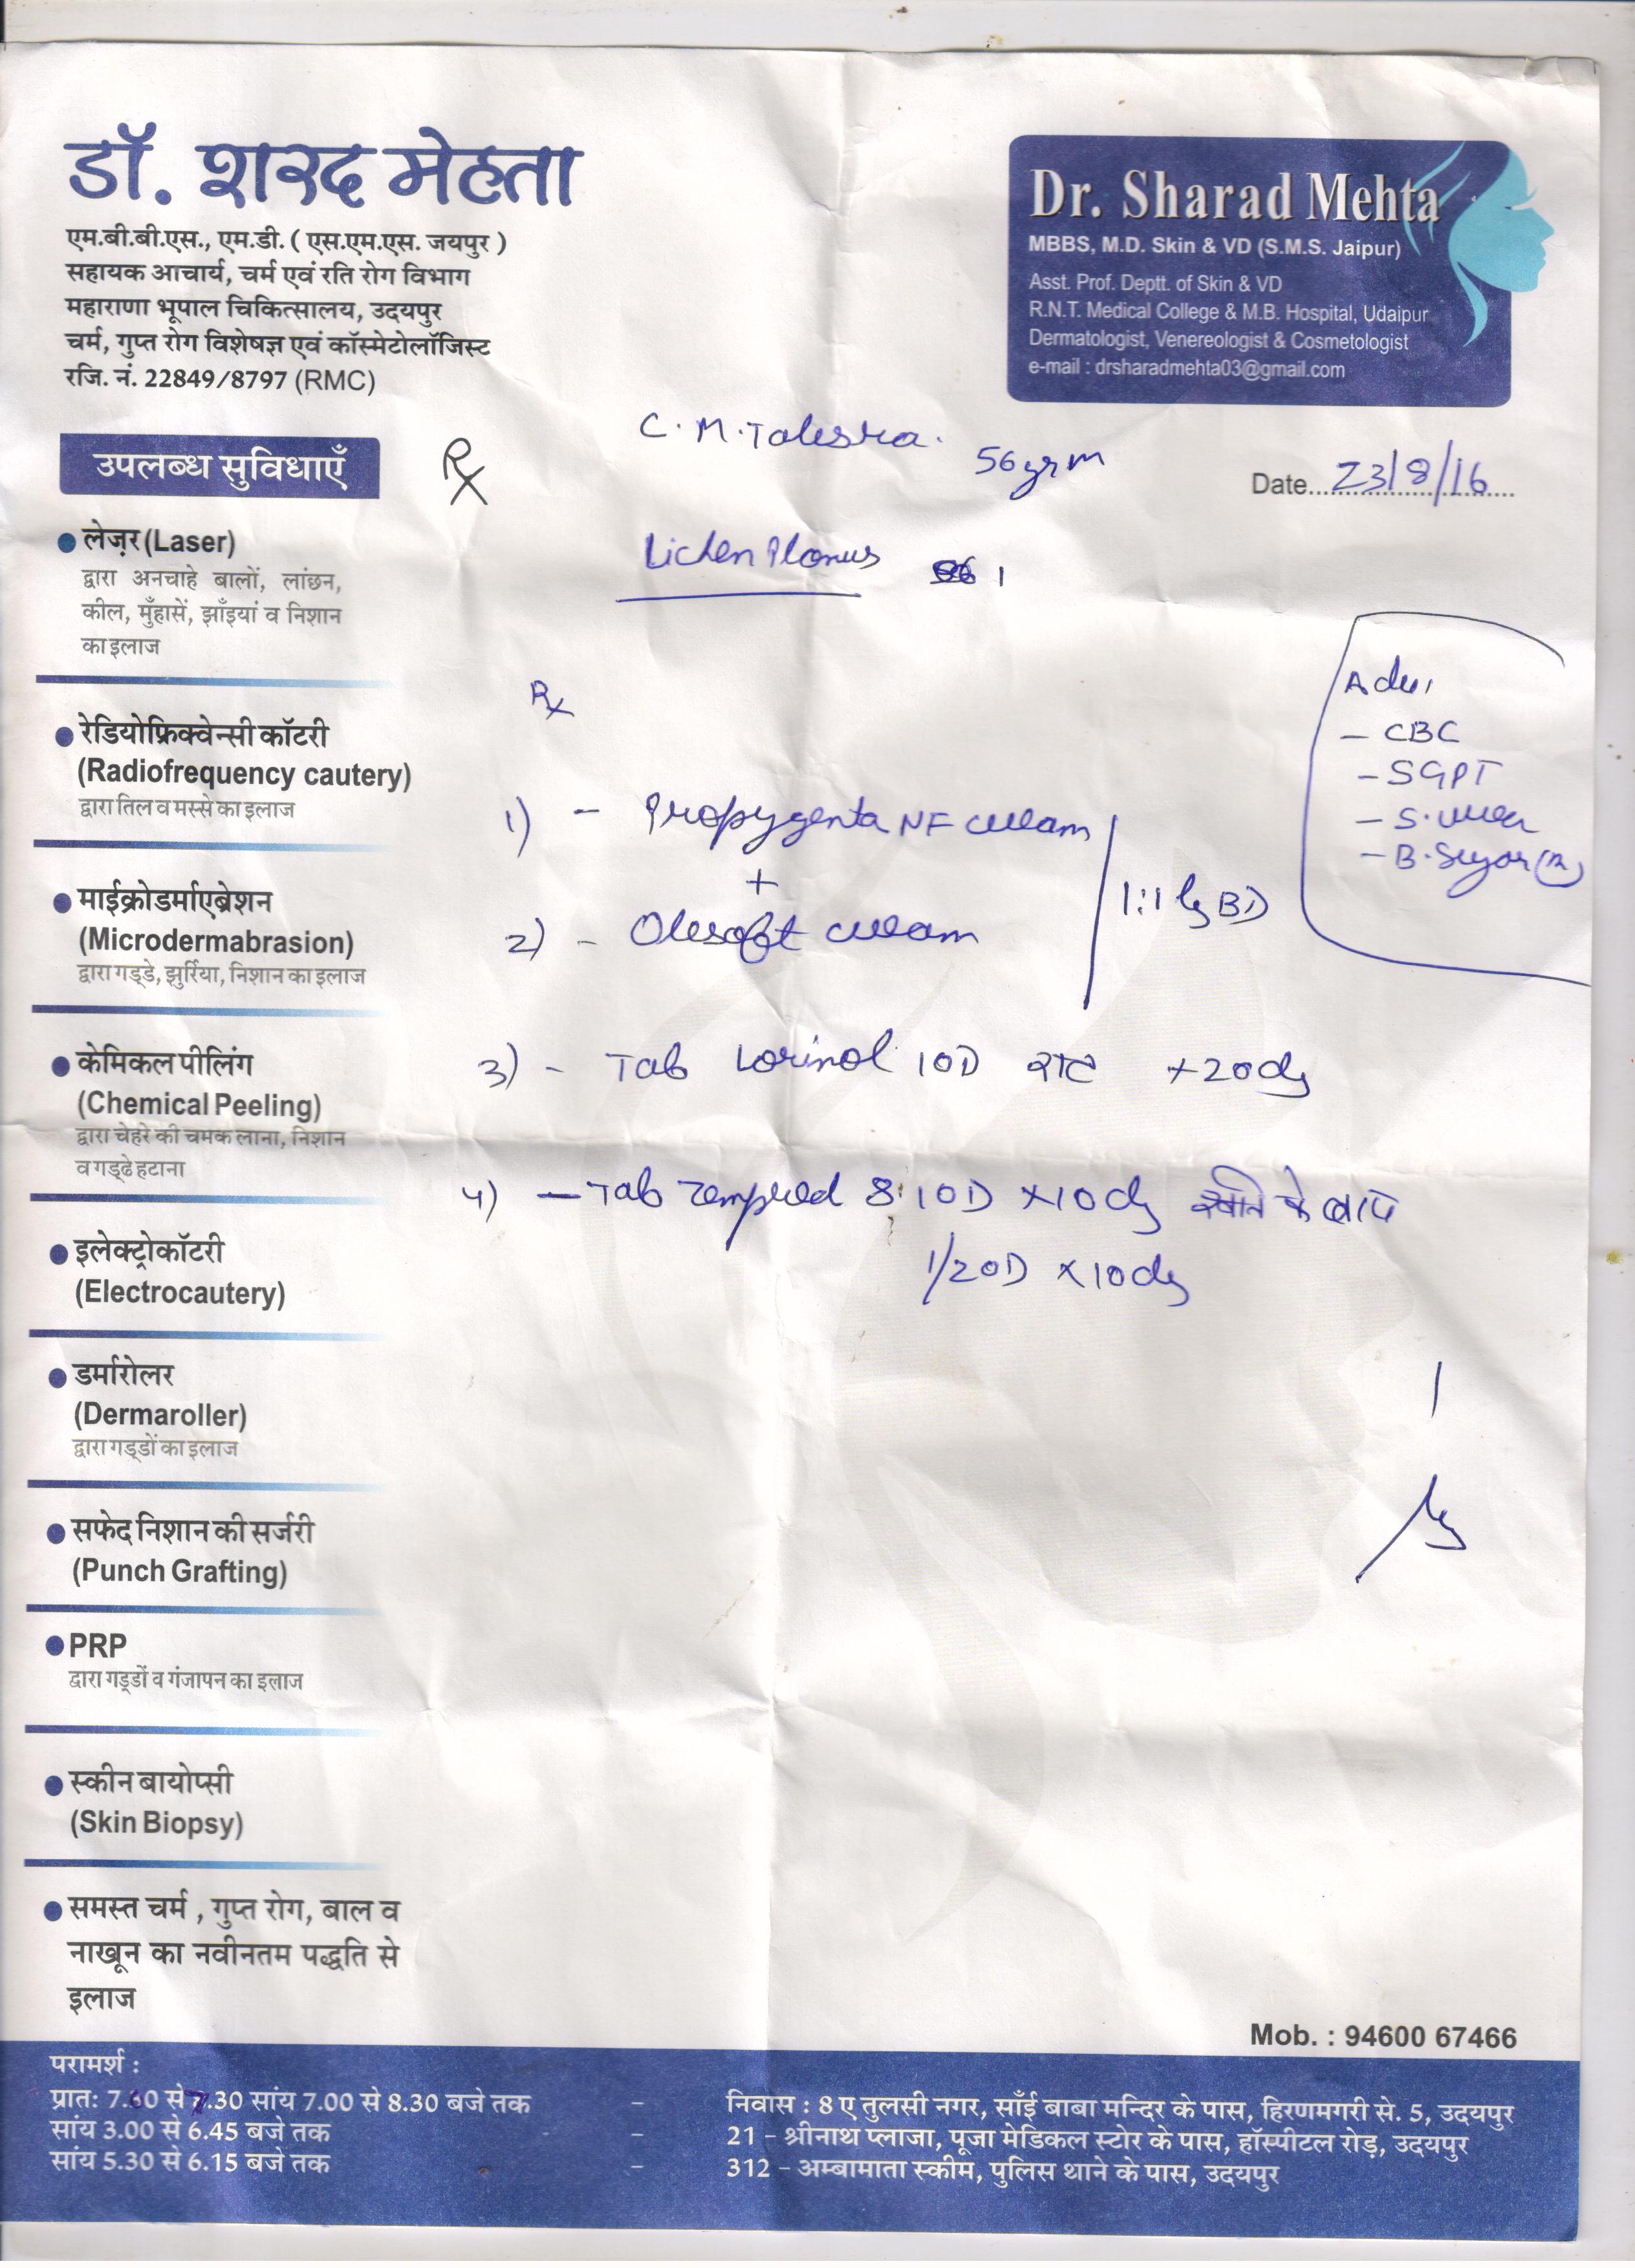 डॉ. शरद मेहता
एम.बी.बी.एस., एम.डी. ( एस.एम.एस. जयपुर )
सहायक आचार्य, चर्म एवं रति रोग विभाग
महाराणा भूपाल चिकित्सालय, उदयपुर
चर्म, गुप्त रोग विशेषज्ञ एवं कॉस्मेटोलॉजिस्ट
रजि. नं. 22849/8797 (RMC)
Dr. Sharad Mehta
MBBS, M.D. Skin & VD (S.M.S. Jaipur)
Asst. Prof. Deptt. of Skin & VD
R.N.T. Medical College & M.B. Hospital, Udaipur
Dermatologist, Venereologist & Cosmetologist
e-mail : drsharadmehta03@gmail.com
C. M. Talesra.
56 yr m
Date 23/8/16
Rx
Lichen Planus
Adv,
- CBC
- SGPT
- S. urea
- B. Sugar (R)
Rx
1) - Propygenta NF cream
+
2) - Olesoft cream
1:1 BD
3) - Tab Lorinol 1OD रात × 20 dy
4) - Tab Zempred 8 1OD × 10 dy खाने के बाद
1/2 OD × 10 dy
उपलब्ध सुविधाएँ
लेज़र (Laser)
द्वारा अनचाहे बालों, लांछन,
कील, मुँहासें, झाँइयां व निशान
का इलाज
रेडियोफ्रिक्वेन्सी कॉटरी
(Radiofrequency cautery)
द्वारा तिल व मस्से का इलाज
माईक्रोडर्माएब्रेशन
(Microdermabrasion)
द्वारा गड्डे, झुर्रिया, निशान का इलाज
केमिकल पीलिंग
(Chemical Peeling)
द्वारा चेहरे की चमक लाना, निशान
व गड्ढे हटाना
इलेक्ट्रोकॉटरी
(Electrocautery)
डर्मारोलर
(Dermaroller)
द्वारा गड्डों का इलाज
सफेद निशान की सर्जरी
(Punch Grafting)
PRP
द्वारा गड्डों व गंजापन का इलाज
स्कीन बायोप्सी
(Skin Biopsy)
समस्त चर्म , गुप्त रोग, बाल व
नाखून का नवीनतम पद्धति से
इलाज
Mob. : 94660 67466
परामर्श :
प्रात: 7.00 से 7.30 सांय 7.00 से 8.30 बजे तक - निवास : 8 ए तुलसी नगर, साँई बाबा मन्दिर के पास, हिरणमगरी से. 5, उदयपुर
सांय 3.00 से 6.45 बजे तक - 21 - श्रीनाथ प्लाजा, पूजा मेडिकल स्टोर के पास, हॉस्पीटल रोड़, उदयपुर
सांय 5.30 से 6.15 बजे तक - 312 - अम्बामाता स्कीम, पुलिस थाने के पास, उदयपुर